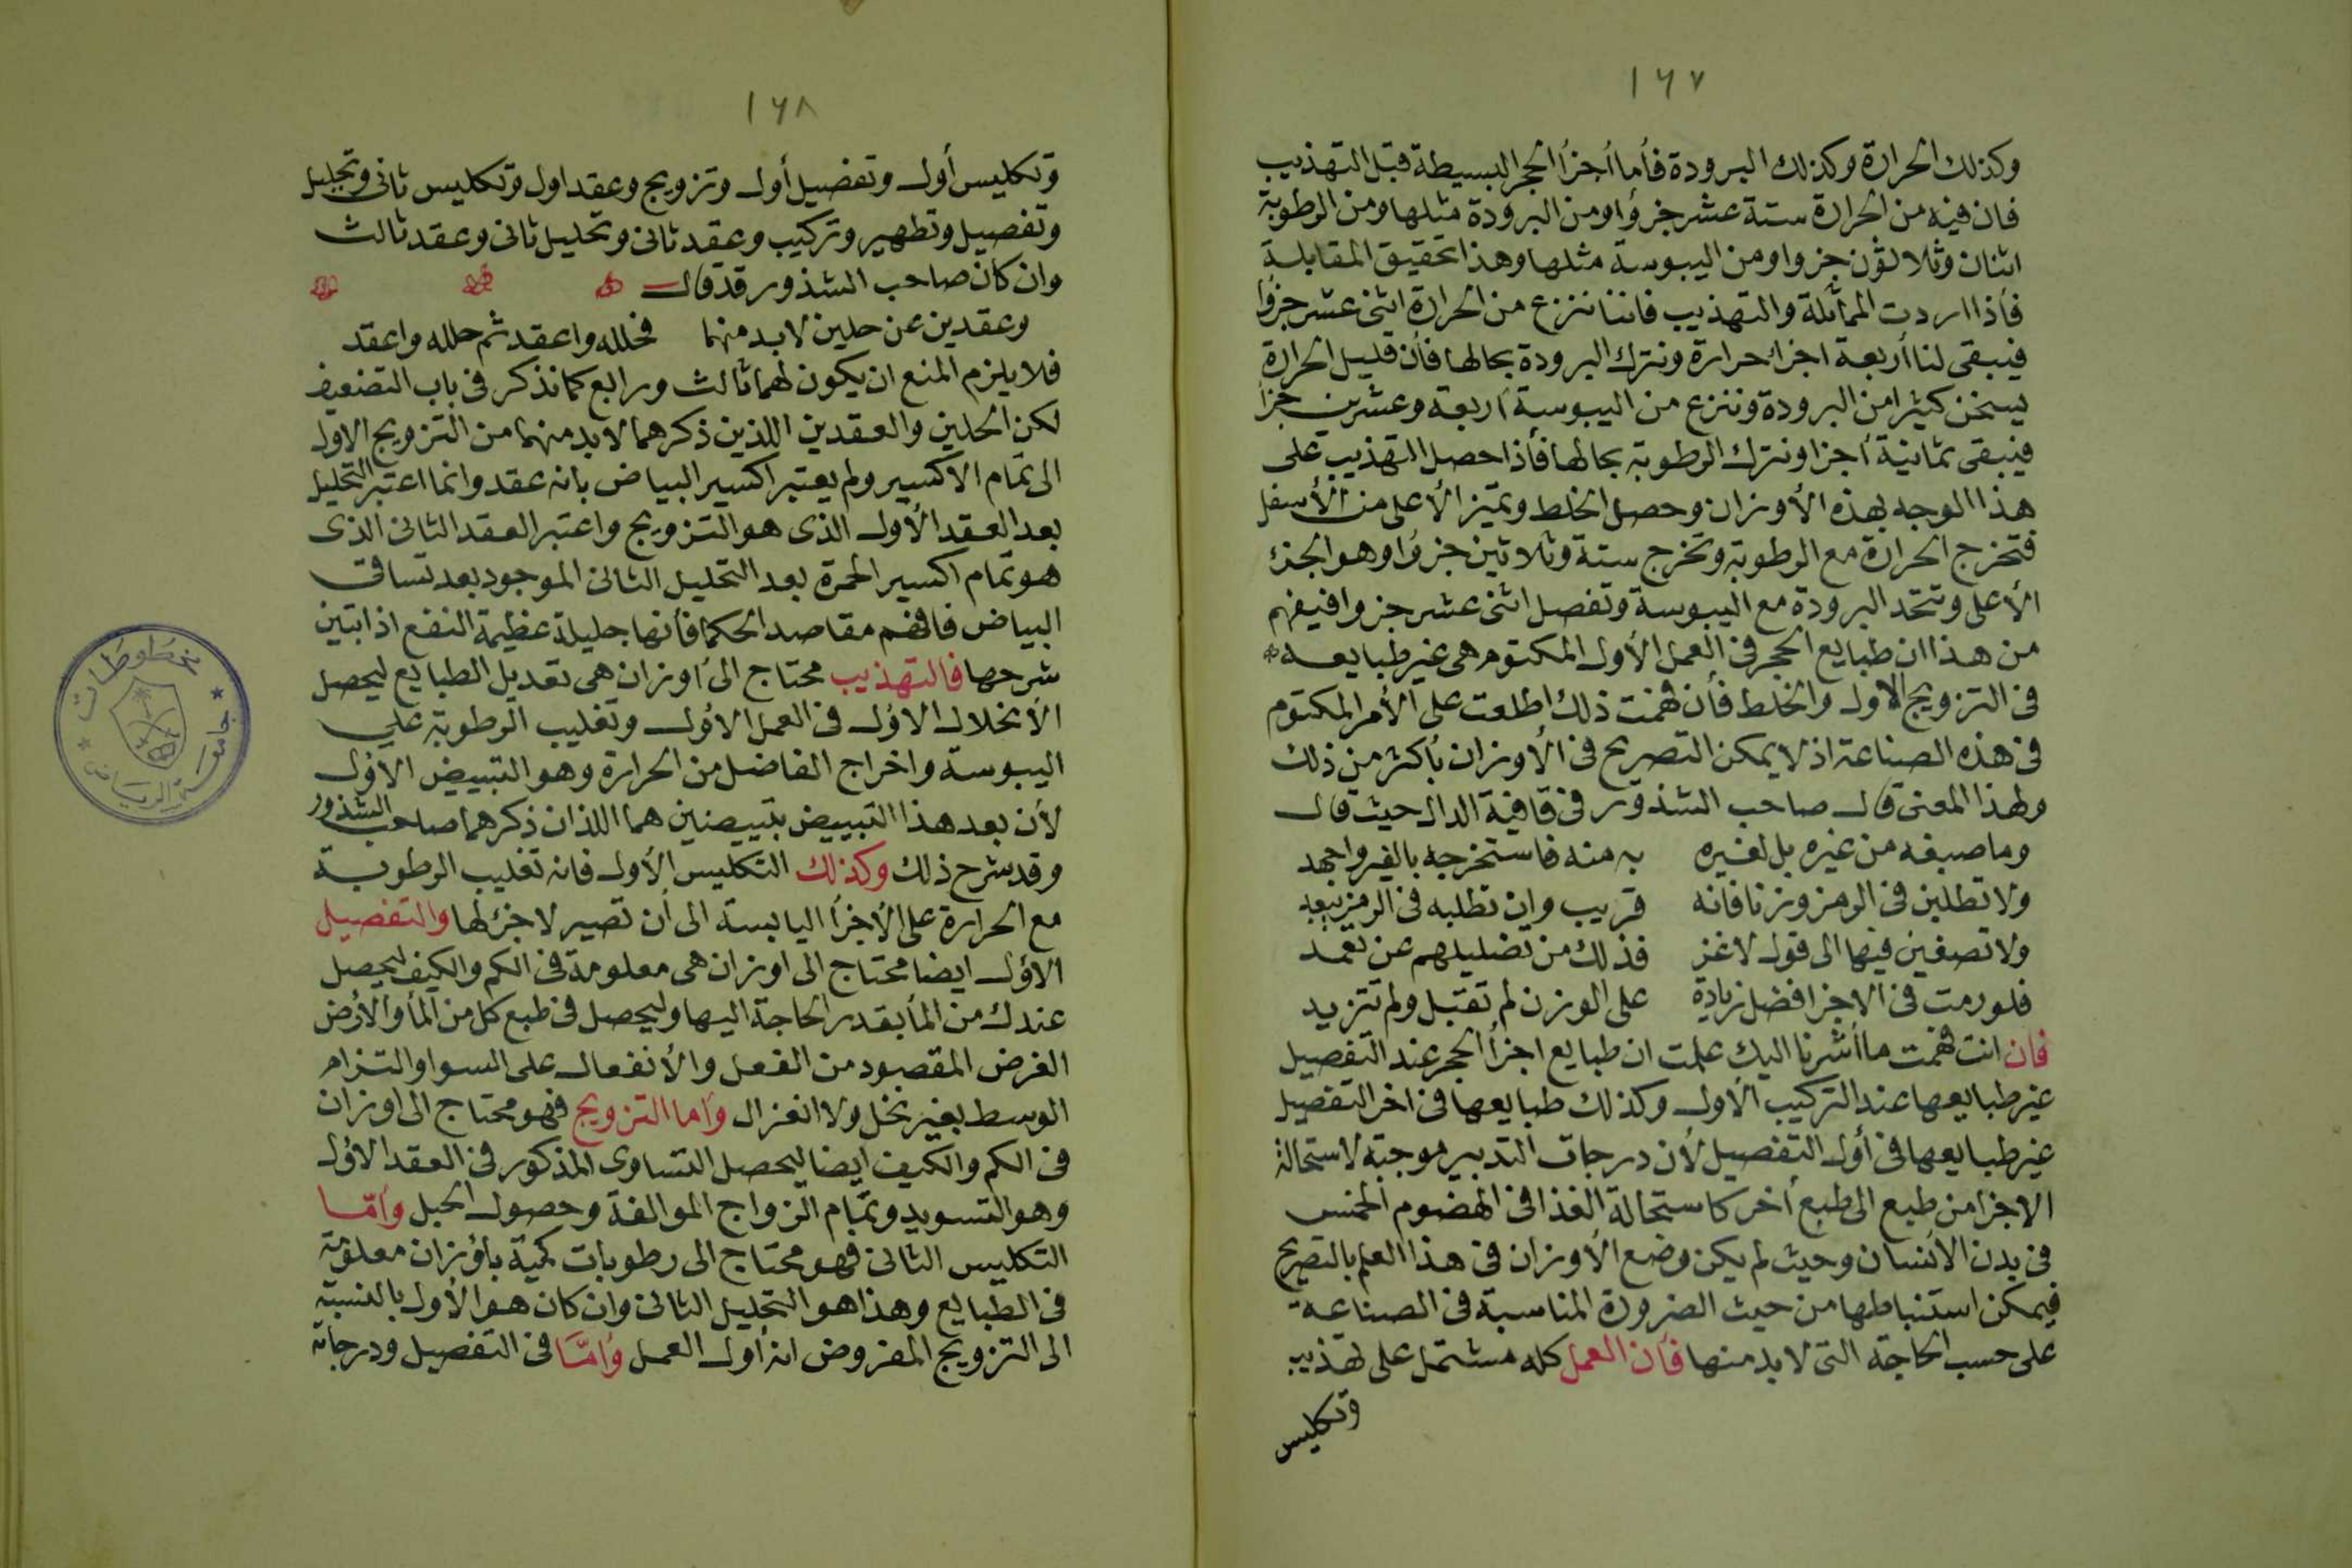 ١٦٧
وكذلك الحرارة وكذلك البرودة فأما أجزأ الحجر البسيطة قبل التهذيب
فان فيه من الحرارة ستة عشر جزؤا ومن البرودة مثلها ومن الرطوبة
اثنان وثلاثون جزوا ومن اليبوسة مثلها وهذا تحقيق المقابلة
فأذا اردت المماثلة والتهذيب فاننا ننزع من الحرارة اثنى عشر جزؤا
فيبقى لنا أربعة اجزاء حرارة ونترك البرودة بحالها فأن قليل الحرارة
يسخن كثيرا من البرودة وننزع من اليبوسة أربعة وعشرين جزأ
فيبقى ثمانية أجزا ونترك الرطوبة بحالها فأذا حصل التهذيب على
هذا الوجه بهذه الأوزان وحصل الخلط وتميز الأعلى من الأسفل
فتخرج الحرارة مع الرطوبة وتخرج ستة وثلاثين جزؤا وهو الجزء
الأعلى وتتحد البرودة مع اليبوسة وتفصل اثنى عشر جزوا فيفهم
من هذا ان طبايع الحجر فى العمل الأول المكتوم هى غير طبايعه
فى التزويج الاول والخلط فأن فهمت ذلك اطلعت على الأمر المكتوم
فى هذه الصناعة اذ لا يمكن التصريح فى الأوزان بأكثر من ذلك
ولهذا المعنى قال صاحب الشذور فى قافية الدال حيث قال
وما صبغه من غيره بل لغيره به منه فاستخرجه بالغير واجهد
ولا تطلبن فى الرمز وزنا فانه قريب وان تطلبه فى الرمز يبعد
ولا تصغين فيها الى قول لاغز فذلك من تضليلهم عن تعمد
فلو رمت فى الاجزا فضل زيادة على الوزن لم تقبل ولم تتزيد
فان انت فهمت ما أشرنا اليك علمت ان طبايع اجزأ الحجر عند التفصيل
غير طبايعها عند التركيب الأول وكذلك طبايعها فى اخر التفصيل
غير طبايعها فى أول التفصيل لأن درجات التدبير موجبة لاستحالة
الاجزا من طبع الى طبع أخر كاستحالة الغذا فى الهضوم الخمس
فى بدن الأنسان وحيث لم يكن وضع الأوزان فى هذا العلم بالتصريح
فيمكن استنباطها من حيث الضرورة المناسبة فى الصناعة
على حسب الحاجة التى لا بد منها فأن العمل كله مشتمل على تهذيب
وتكليس
١٦٨
وتكليس أول وتفصيل أول وتزويج وعقد اول وتكليس ثانى وتحليل
وتفصيل وتطهير وتركيب وعقد ثانى وتحليل ثانى وعقد ثالث
وان كان صاحب الشذور قد قال
وعقدين عن حلين لا بد منهما فحلله واعقد ثم حلله واعقد
فلا يلزم المنع ان يكون لهما ثالث ورابع كما نذكر فى باب التضعيف
لكن الحلين والعقدين اللذين ذكرهما لا بد منهما من التزويج الاول
الى تمام الاكسير ولم يعتبر اكسير البياض بانه عقد وانما اعتبر التحليل
بعد العقد الأول الذى هو التزويج واعتبر العقد الثانى الذى
هو تمام اكسير الحمرة بعد التحليل الثانى الموجود بعد تساقى
البياض فافهم مقاصد الحكما فأنها جليلة عظيمة النفع اذا تبين
شرحها فالتهذيب محتاج الى أوزان هى تعديل الطبايع ليحصل
الأنحلال الاول فى العمل الاؤل وتغليب الرطوبة على
اليبوسة واخراج الفاضل من الحرارة وهو التبييض الاؤل
لأن بعد هذا التبييض تبييضين هما اللذان ذكرهما صاحب الشذور
وقد شرح ذلك وكذلك التكليس الأول فانه تغليب الرطوبة
مع الحرارة على الأجزأ اليابسة الى أن تصير لا جزء لها والتفصيل
الاؤل ايضا محتاج الى اوزان هى معلومة فى الكم والكيف ليحصل
عندك من المأ بقدر الحاجة اليها وليحصل فى طبع كل من المأ والأرض
الغرض المقصود من الفعل والأنفعال على السوا والتزام
الوسط بغير نخل ولا انغزال وأما التزويج فهو محتاج الى اوزان
فى الكم والكيف ايضا ليحصل التساوى المذكور فى العقد الاؤل
وهو التسويد وتمام الزواج الموالفة وحصول الحبل وأمّا
التكليس الثانى فهو محتاج الى رطوبات كمية بأوزان معلومة
فى الطبايع وهذا هو التحليل الثانى وان كان هو الأول بالنسبة
الى التزويج المفروض انه أول العمل وأمّا فى التفصيل ودرجاته
مخطوطات
جامعة الرياض